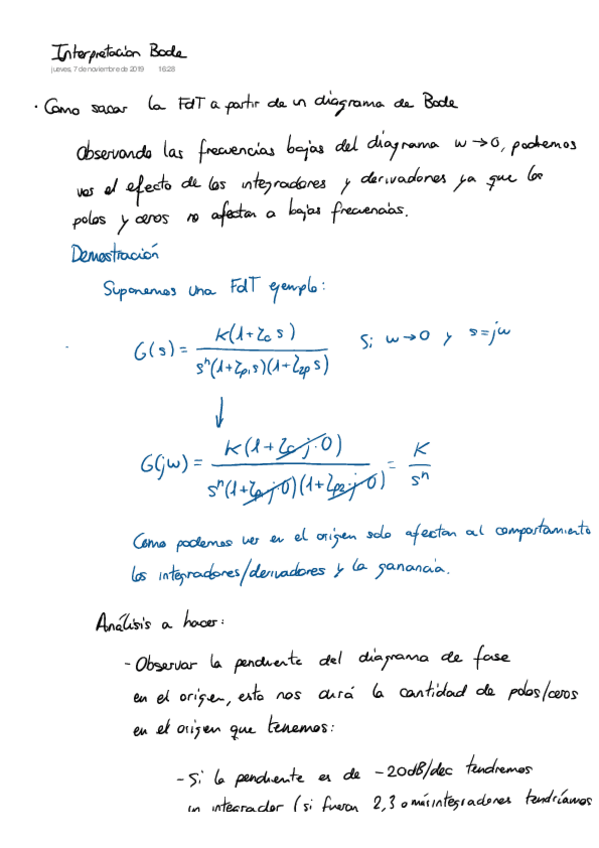 Interpretación Bode
jueves, 7 de noviembre de 2019 16:28
· Como sacar la FdT a partir de un diagrama de Bode
Observando las frecuencias bajas del diagrama w→0, podemos
ver el efecto de los integradores y derivadores ya que los
polos y ceros no afectan a bajas frecuencias.
Demostración
Suponemos una FdT ejemplo:
G(s) = K(1+τc s) / s^n(1+τp1 s)(1+τ2p s) Si w→0 y s=jw
↓
G(jw) = K(1+τc j·0) / s^n(1+τp j·0)(1+τp2 j·0) = K / s^n
Como podemos ver en el origen solo afectan al comportamiento
los integradores/derivadores y la ganancia.
Análisis a hacer:
- Observar la pendiente del diagrama de fase
en el origen, esto nos dirá la cantidad de polos/ceros
en el origen que tenemos:
- Si la pendiente es de -20dB/dec tendremos
un integrador (si fueran 2,3 o más integradores tendríamos